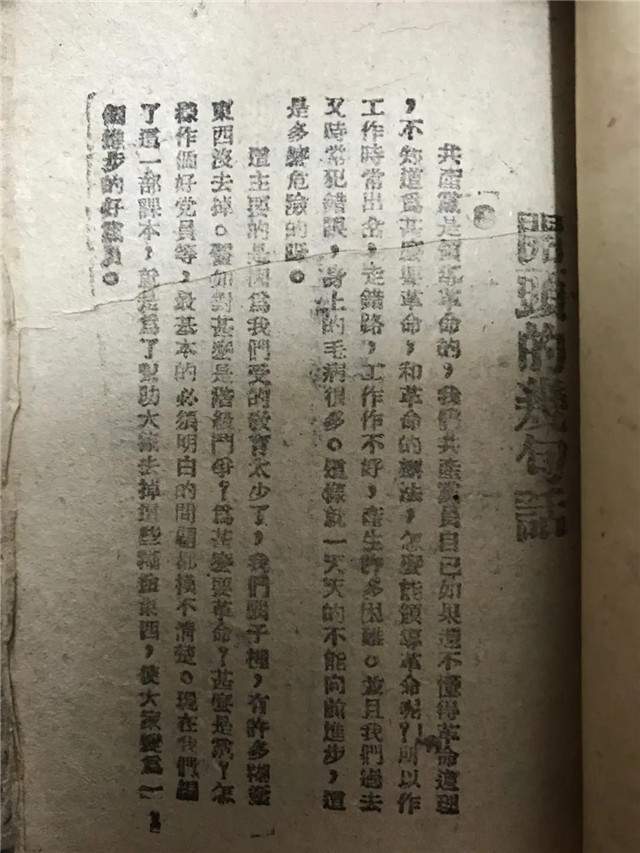 開頭的幾句話
共產黨是領導革命的，我們共產黨員自己如果還不懂得革命道理
，不知道爲甚麽要革命，和革命的辦法，怎麽能領導革命呢？所以作
工作時常出岔，走錯路，工作作不好，產生許多困難。並且我們過去
又時常犯錯誤，身上的毛病很多。這樣就一天天的不能向前進步，這
是多麽危險的呀。
這主要的是因爲我們受的教育太少了，我們腦子裡，有許多糊塗
東西沒去掉。譬如對甚麽是階級鬥爭？爲甚麽要革命？甚麽是黨？怎
樣作個好党員等，最基本的必須明白的問題都摸不清楚。現在我們編
了這一部課本，就是爲了幫助大家去掉這些糊塗東西，使大家變爲一
個進步的好黨員。
1